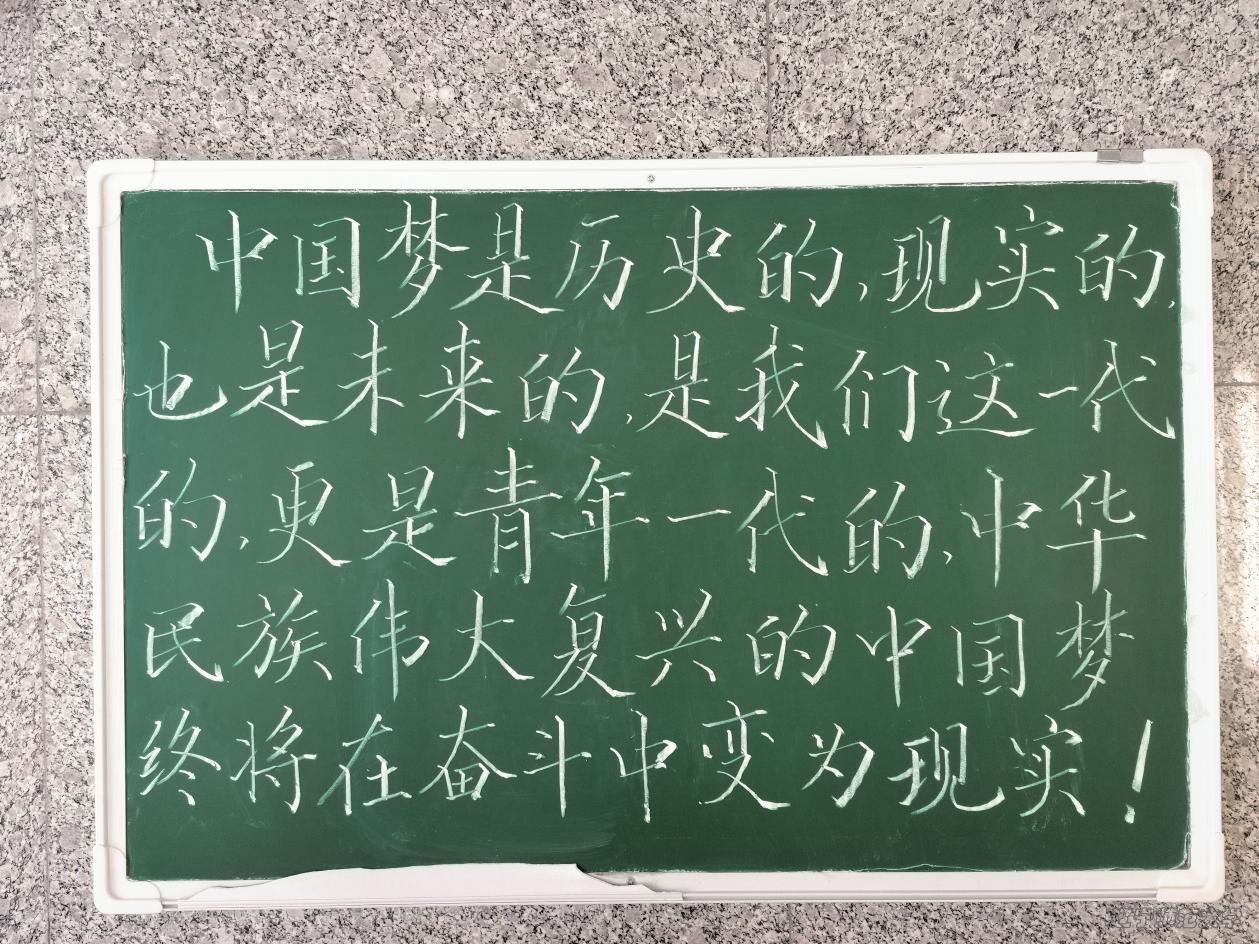 中国梦是历史的,现实的,
也是未来的,是我们这一代
的,更是青年一代的,中华
民族伟大复兴的中国梦
终将在奋斗中变为现实!